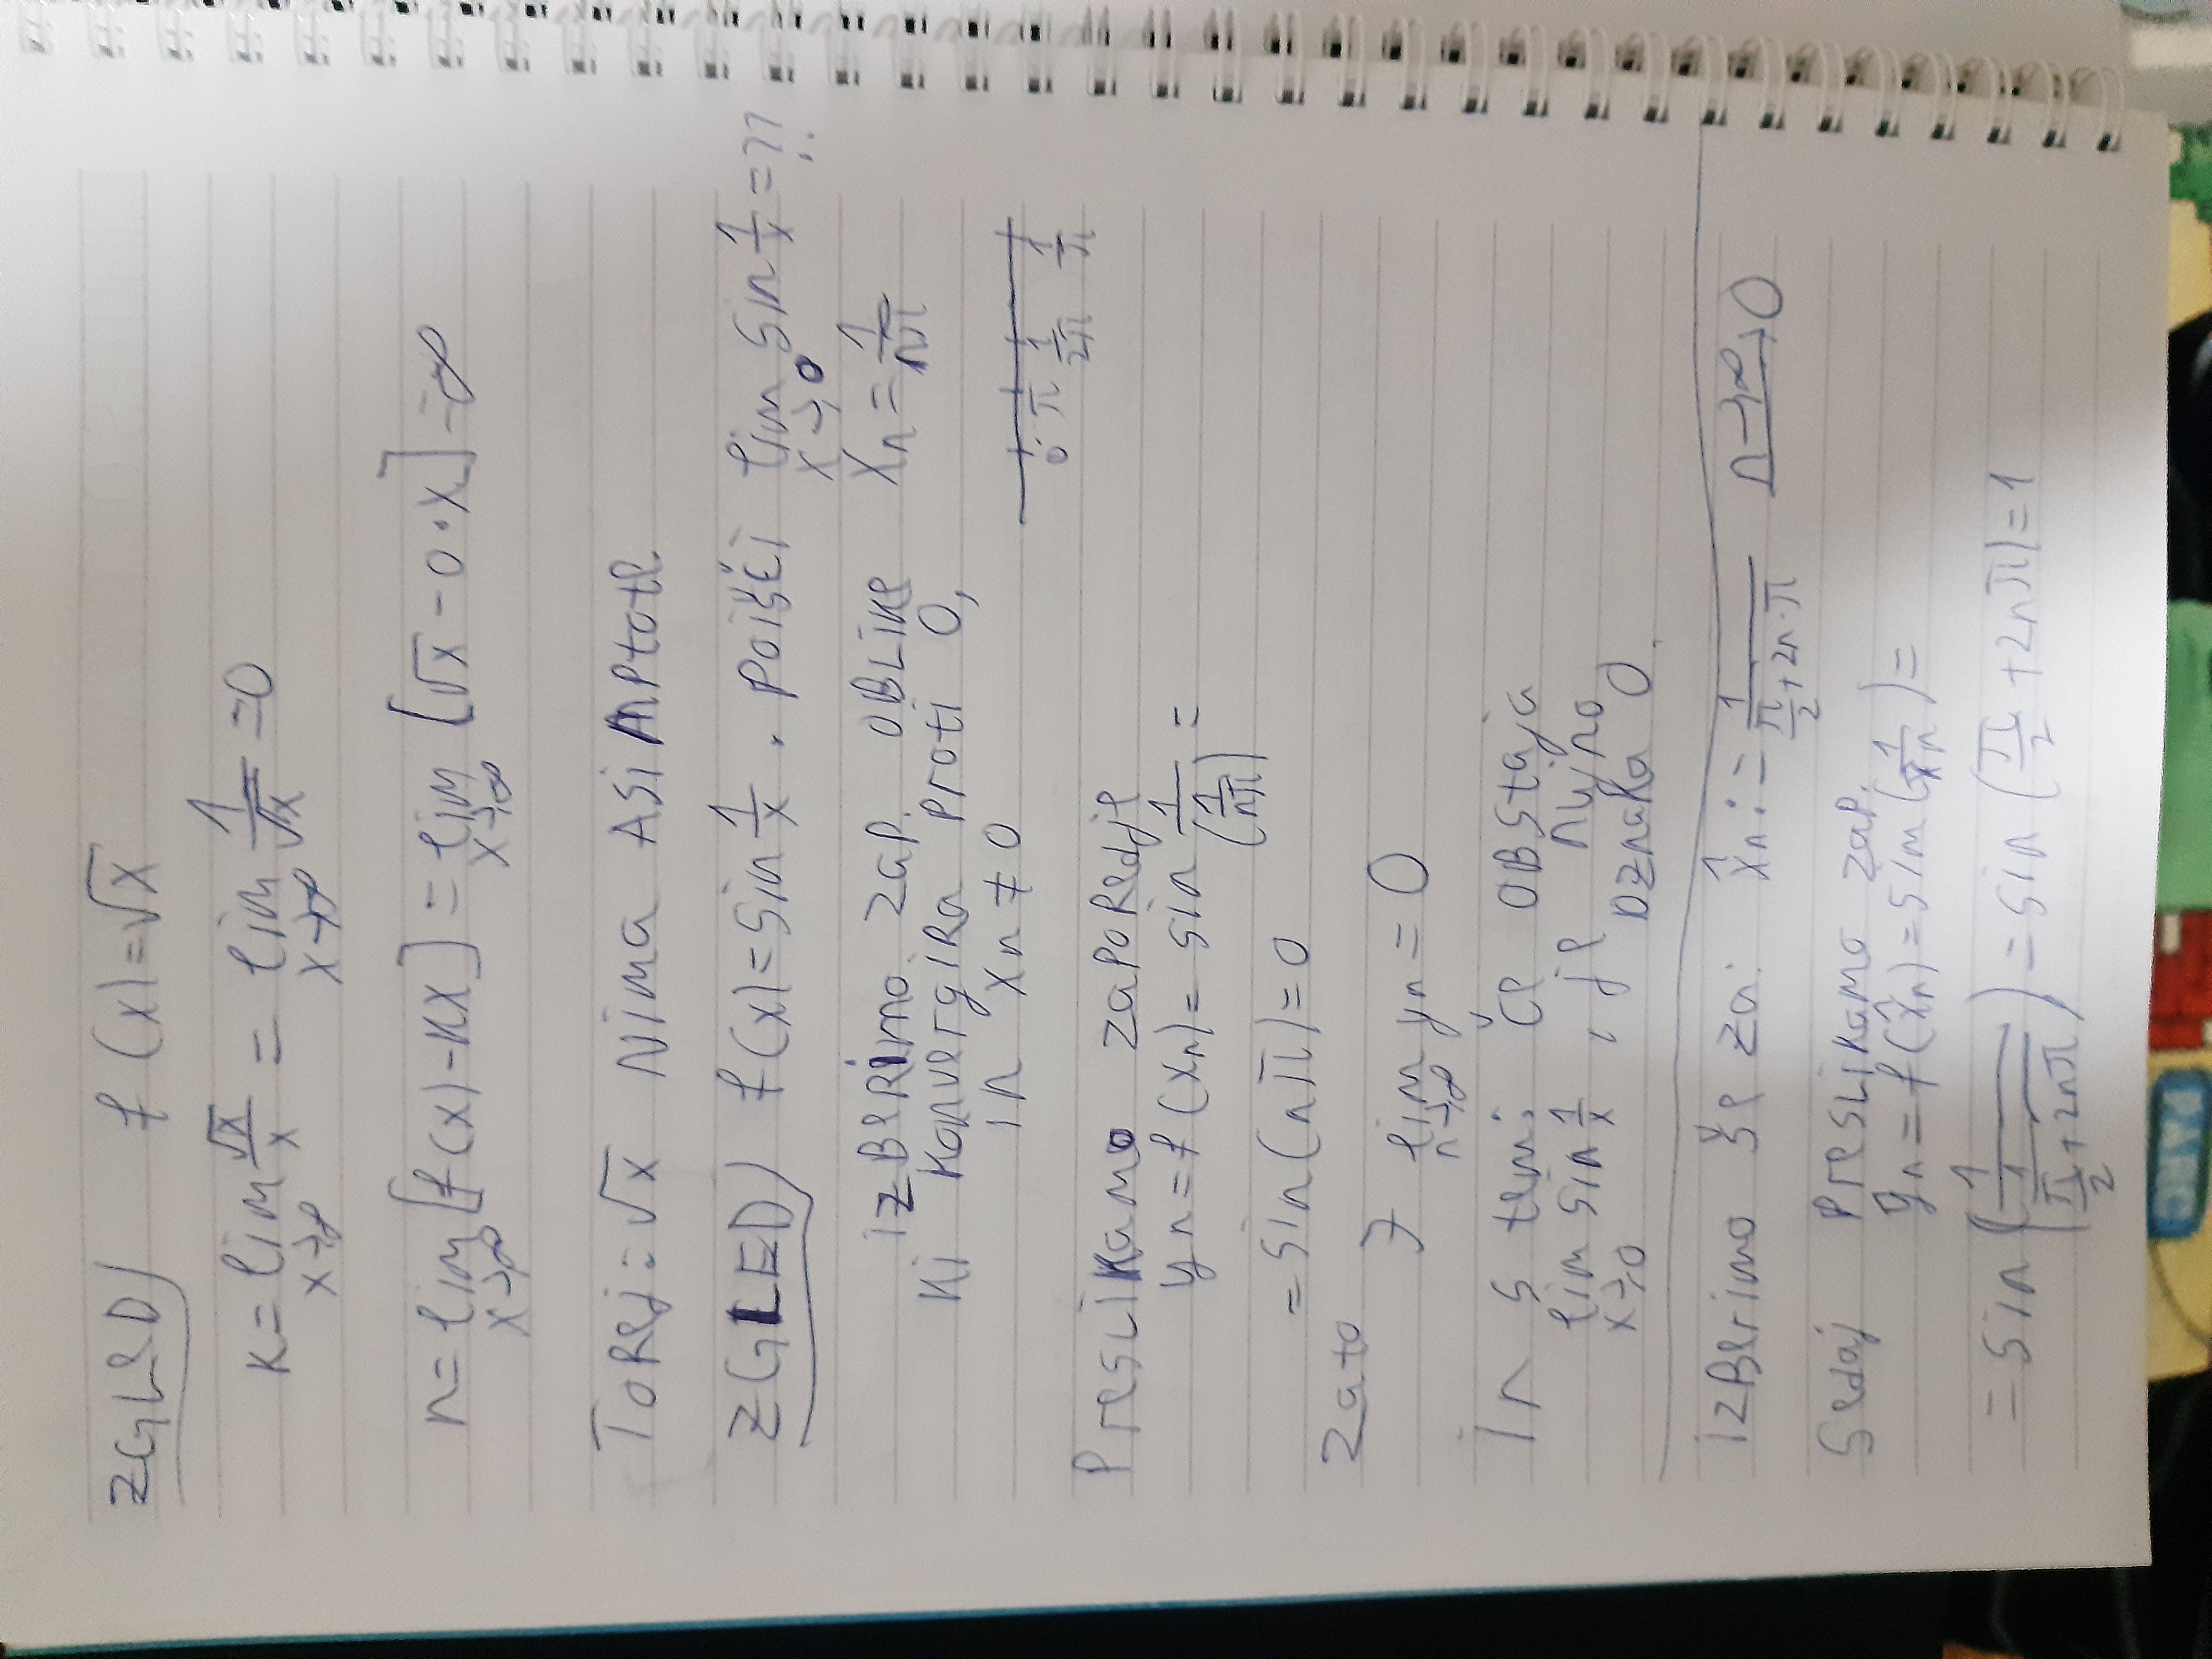 ZGLED) f(x)=√x
K = lim x→∞ √x/x = lim x→∞ 1/√x = 0
n = lim x→∞ [f(x)-Kx] = lim x→∞ [√x - 0·x] = ∞
Torej: √x Nima Asimptote.
ZGLED) f(x)=sin 1/x . poišči lim x→0 sin 1/x = ??
izberimo zap. oblike Xn = 1/nπ
Ki konvergira proti 0,
in xn ≠ 0
0 π 1/2π 1/π
Preslikamo zaporedje
yn = f(xn) = sin 1/(1/nπ) =
= sin(nπ) = 0
Zato
∃ lim n→∞ yn = 0
In s tem: če obstaja
lim x→0 sin 1/x , je nujno
oznaka 0.
izberimo še za: x̂n := 1/(π/2 + 2n·π) n→∞ → 0
Sedaj preslikamo zap.
ŷn = f(x̂n) = sin(1/x̂n) =
= sin(1/(1/(π/2 + 2nπ))) = sin(π/2 + 2nπ) = 1
PARC